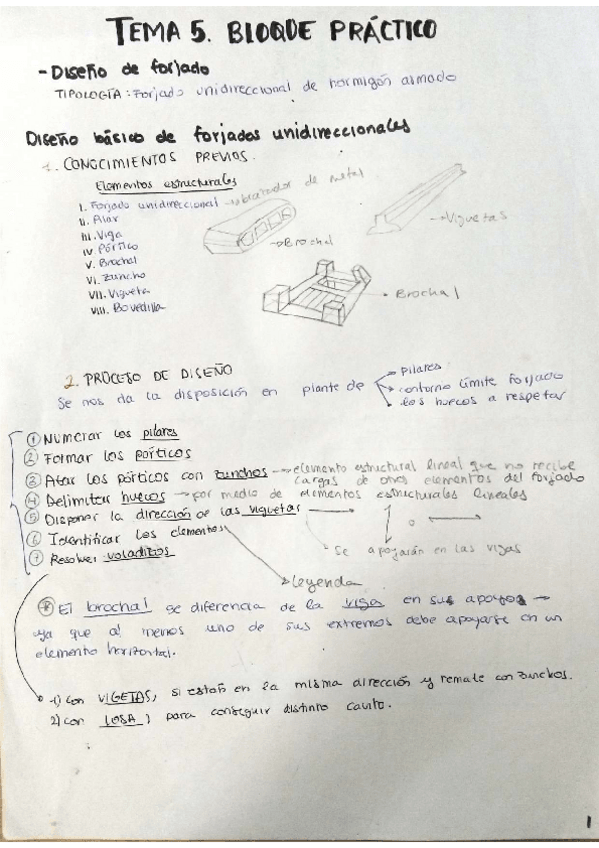 TEMA 5. BLOQUE PRÁCTICO
- Diseño de forjado
TIPOLOGÍA: Forjado unidireccional de hormigón armado
Diseño básico de forjados unidireccionales
1. CONOCIMIENTOS PREVIOS.
Elementos estructurales
I. Forjado unidireccional → vibrador de metal
II. Pilar
III. Viga
IV. Pórtico
V. Brochal
VI. Zuncho
VII. Vigueta
VIII. Bovedilla
→ Viguetas
→ Brochal
Brochal
2. PROCESO DE DISEÑO
Se nos da la disposición en planta de
pilares
contorno límite forjado
los huecos a respetar
① Numerar los pilares
② Formar los pórticos
③ Atar los pórticos con zunchos → elemento estructural lineal que no recibe
cargas de otros elementos del forjado
④ Delimitar huecos → por medio de elementos estructurales lineales
⑤ Disponer la dirección de las viguetas
o
Se apoyarán en las vigas
⑥ Identificar los elementos
⑦ Resolver voladizos
→ Leyenda
El brochal se diferencia de la viga en sus apoyos →
ya que al menos uno de sus extremos debe apoyarse en un
elemento horizontal.
1) Con VIGETAS, si están en la misma dirección y remate con zunchos.
2) Con LOSA, para conseguir distinto canto.
1